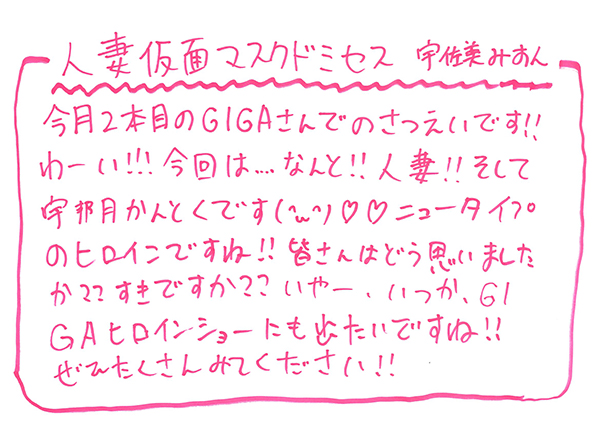 人妻仮面マスクドミセス 宇佐美みおん
今月2本目のGIGAさんでのさつえいです!!
わーい!!!今回は....なんと!!人妻!!そして
宇那月かんとくです(^ω^)♡♡ニュータイプ
のヒロインですね!!皆さんはどう思いました
か??すきですか??いやー、いつか、GI
GAヒロインショーにも出たいですね!!
ぜひたくさんみてください!!